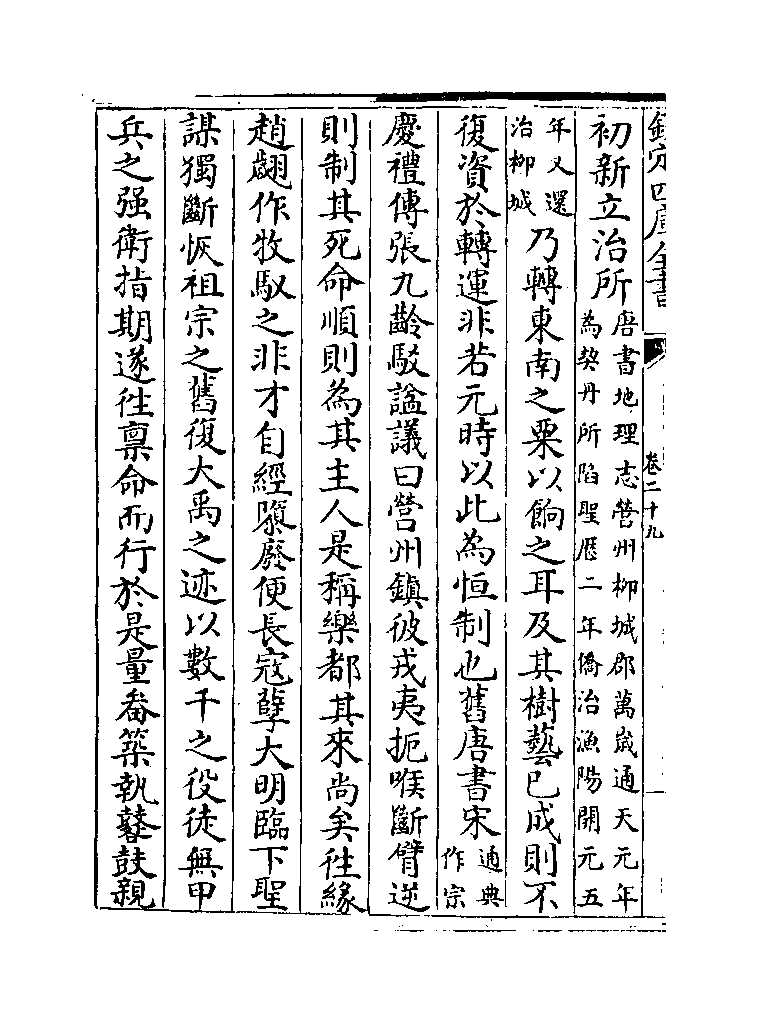 欽定四庫全書
卷二十九
初新立治所唐書地理志營州柳城郡萬歲通天元年為契丹所陷聖厯二年僑治漁陽開元五
年又還治柳城乃轉東南之粟以餉之耳及其樹藝已成則不
復資於轉運非若元時以此為恒制也舊唐書宋通典作宗
慶禮傳張九齡駁諡議曰營州鎮彼戎夷扼喉斷臂逆
則制其死命順則為其主人是稱樂都其來尚矣往緣
趙翽作牧馭之非才自經隳廢便長寇孽大明臨下聖
謀獨斷恢祖宗之舊復大禹之迹以數千之役徒無甲
兵之强衛指期遂往禀命而行於是量畚築執鼛鼓親